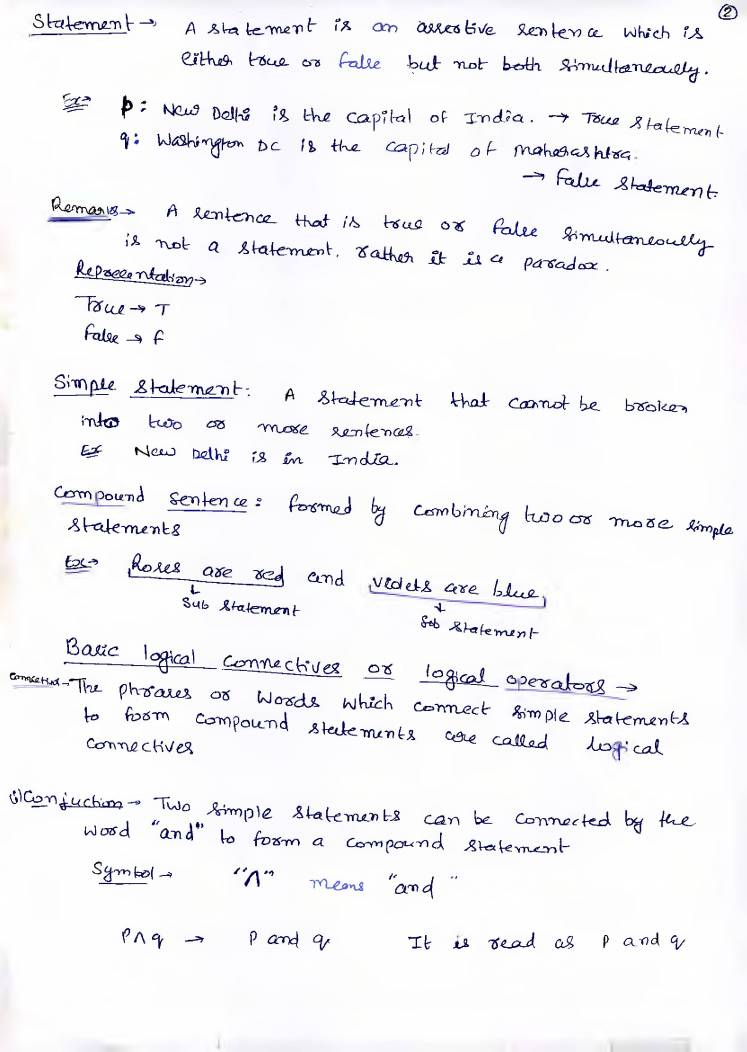 ②
Statement → A statement is an assertive sentence which is
either true or false but not both simultaneously.
Ex → p: New Delhi is the capital of India. → True statement
q: Washington DC is the capital of Maharashtra.
→ False statement.
Remarks → A sentence that is true or false simultaneously
is not a statement. rather it is a paradox.
Representation →
True → T
False → F
Simple statement: A statement that cannot be broken
into two or more sentences.
Ex New Delhi is in India.
Compound sentence: formed by combining two or more simple
statements
Ex → Roses are red and violets are blue,
↓ Sub statement ↓ Sub statement
Basic logical connectives or logical operators →
Connective → The phrases or words which connect simple statements
to form compound statements are called logical
connectives
(i) Conjuction → Two simple statements can be connected by the
word "and" to form a compound statement
Symbol → "∧" means "and"
P∧q → P and q It is read as P and q